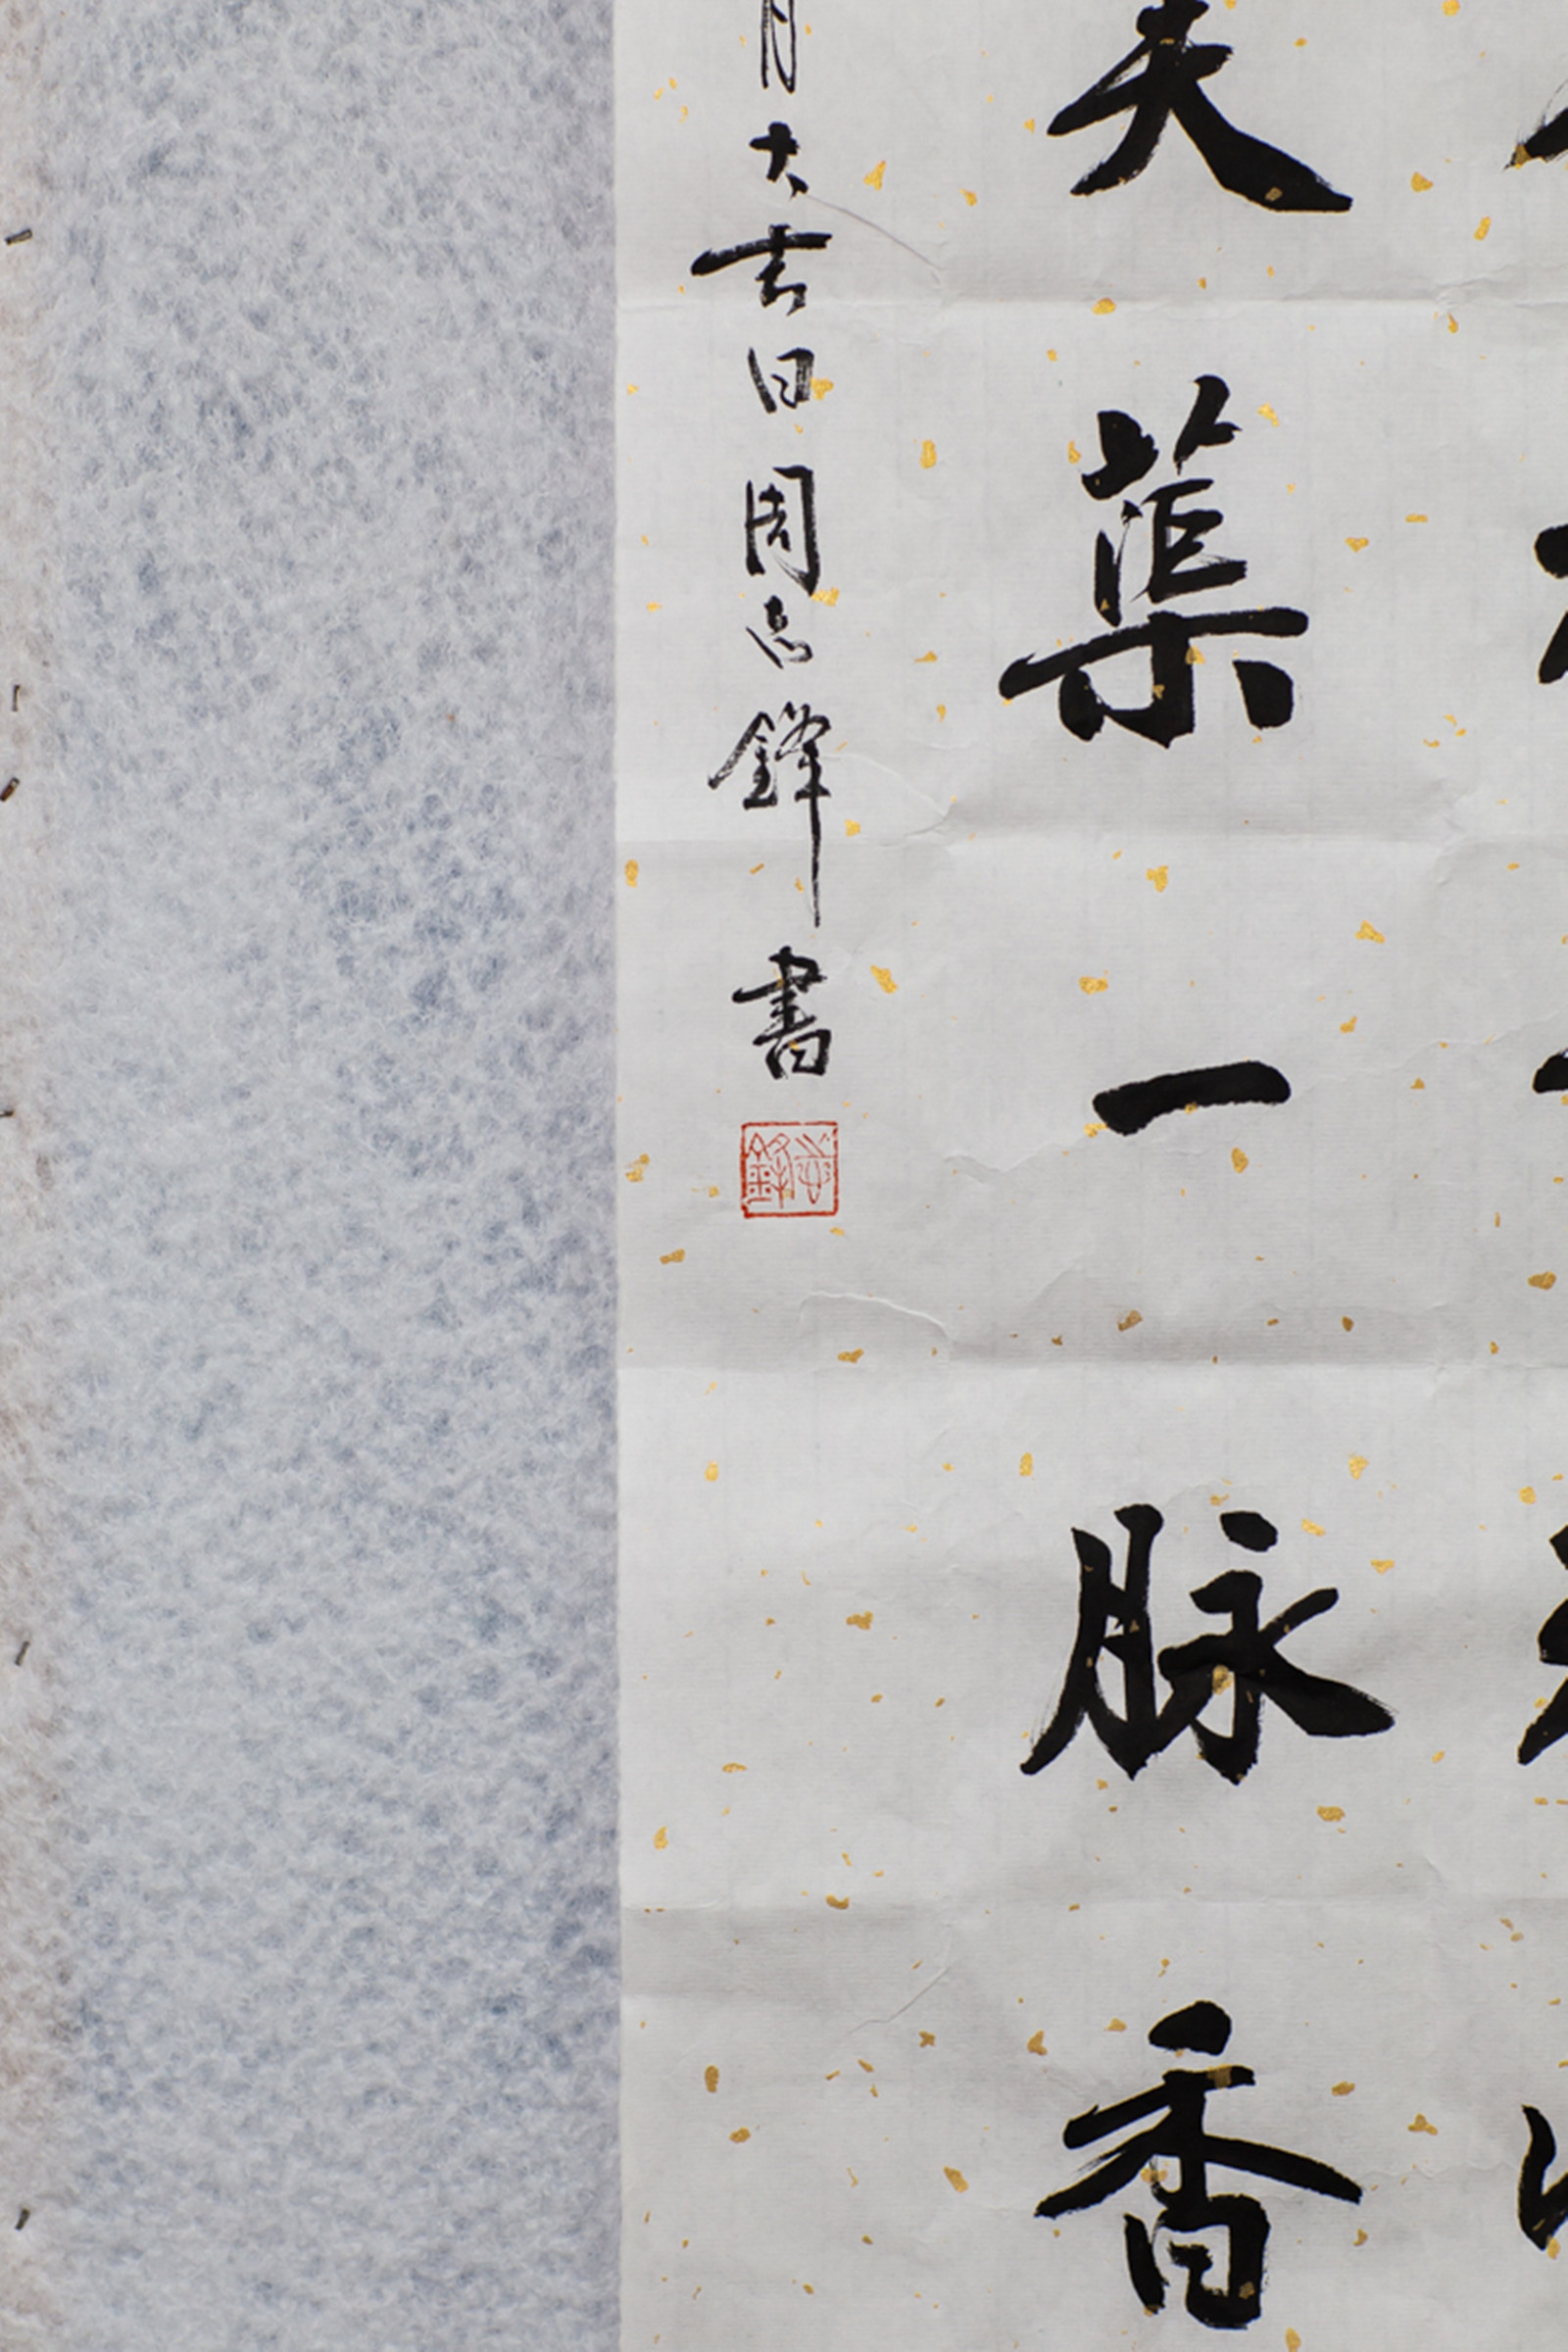 芙蕖一脉香
月大吉日周志鋒書
志鋒